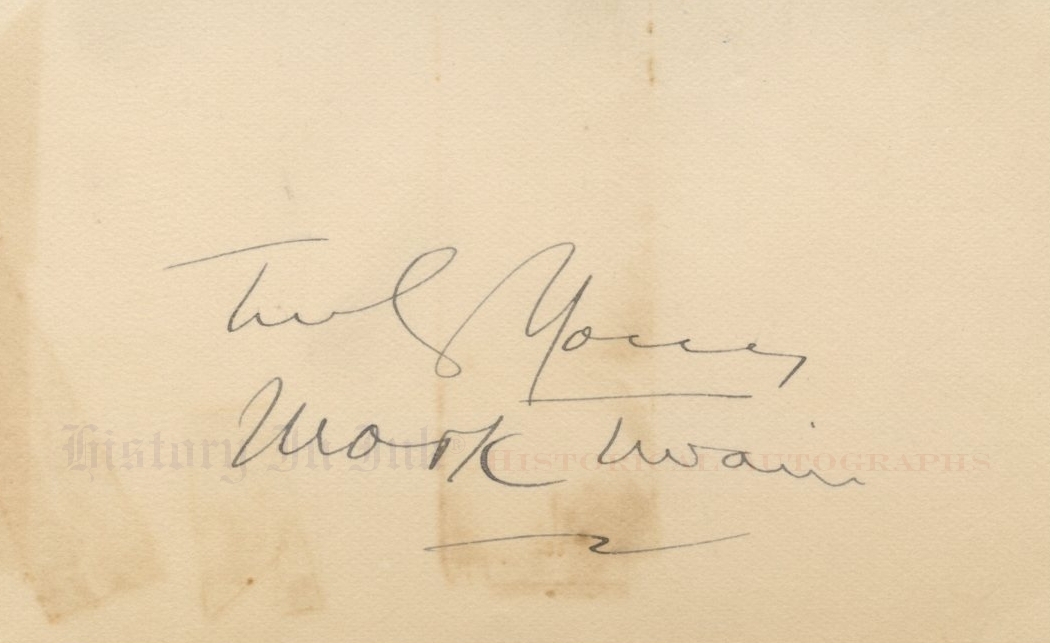 Truly Yours
Mark Twain
History In Ink® Historical Autographs